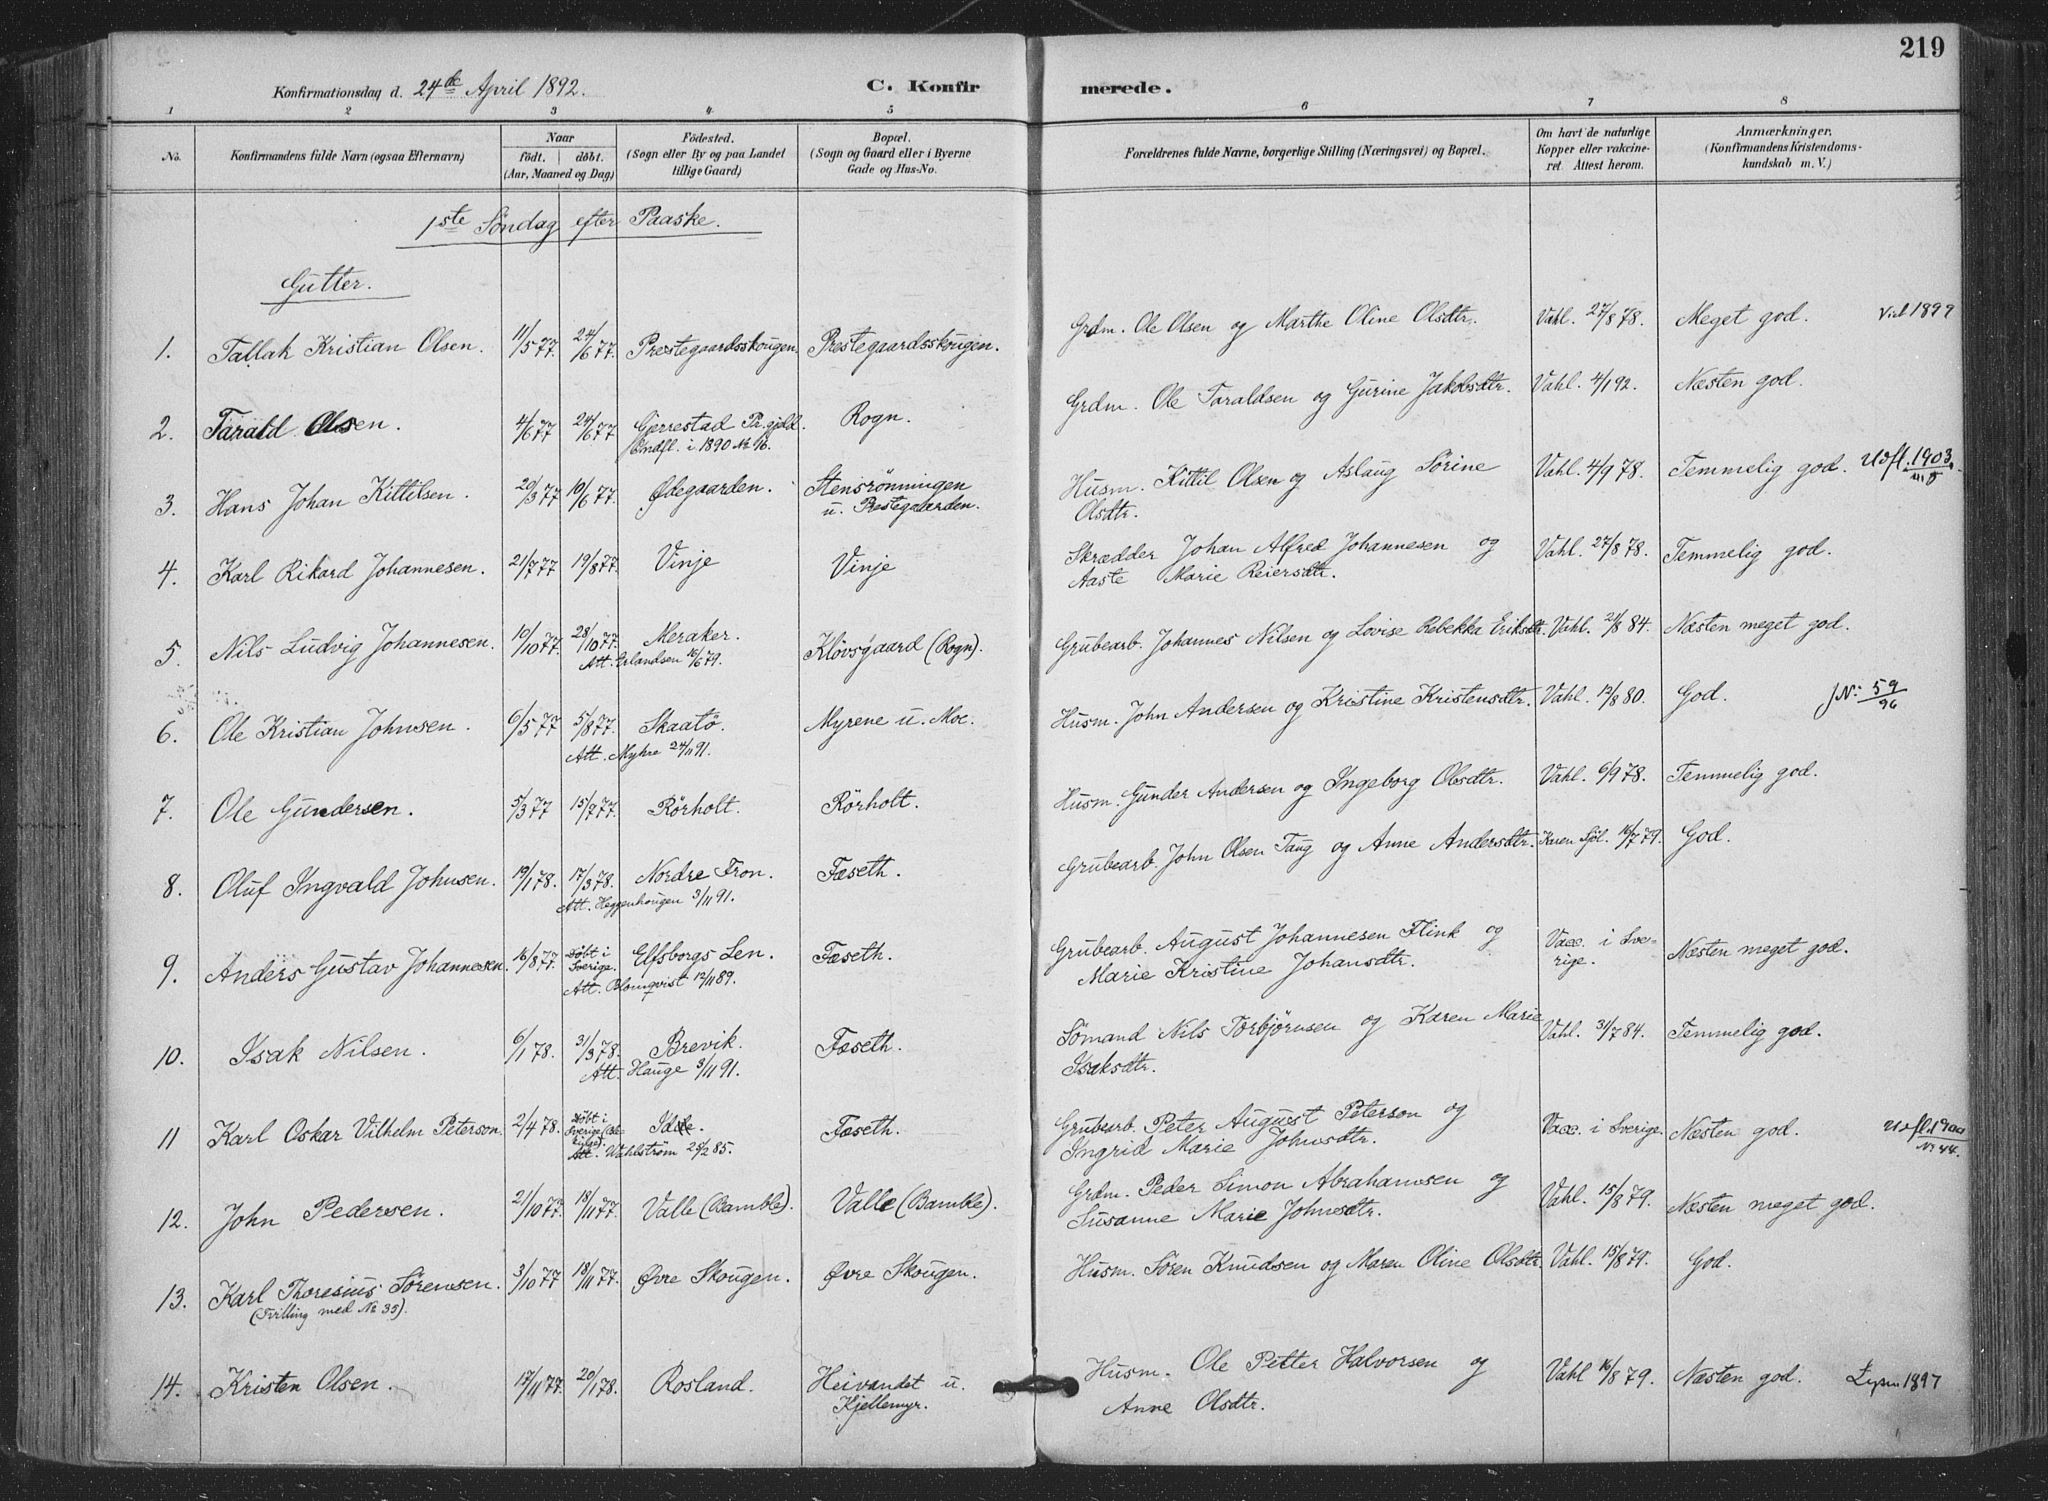 219
Konfirmationsdag d. 24de April 1892.
C. Konfirmerede.
1 2 3 4 5 6 7 8
No.
Konfirmandens fulde Navn (ogsaa Efternavn)
Naar
født. døbt.
(Aar, Maaned og Dag)
Födested.
(Sogn eller By og paa Landet
tillige Gaard)
Bopæl.
(Sogn og Gaard eller i Byerne
Gade og Hus-No.
Forældrenes fulde Navne, borgerlige Stilling (Næringsvei) og Bopæl.
Om havt de naturlige
Kopper eller vakcine-
ret. Attest herom.
Anmærkninger.
(Konfirmandens Kristendoms-
kundskab m. V.)
1ste Søndag efter Paaske.
Gutter.
1. Tallak Kristian Olsen. 11/5 77. 24/6 77. Prestegaardsskougen. Prestegaardsskougen. Grdm. Ole Olsen og Marthe Oline Olsdtr. Vahl. 27/8 78. Meget god. Viel 1899
2. Tarald Olsen. 4/6 77 24/6 77. Gjerrestad Pr.gjeld. Rogn. Grdm. Ole Taraldsen og Gurine Jakobsdtr. Vahl. 4/1 92. Næsten god.
Indfl. i 1890 No 96.
3. Hans Johan Kittilsen. 20/3 77 10/6 77. Ødegaarden. Stensrønningen Husm. Kittil Olsen og Aslaug Sørine Vahl. 4/9 78. Temmelig god. Udfl. 1903.
u. Prestegaarden. Olsdtr.
4. Karl Rikard Johannesen. 21/7 77 19/8 77. Vinje Vinje Skrædder Johan Alfred Johannesen og Vahl. 27/8 78. Temmelig god.
Aaste Marie Reiersdtr.
5. Nils Ludvig Johannesen. 10/10 77. 28/10 77. Meraker. Kløvsgaard (Rogn). Grubearb. Johannes Nilsen og Lovise Rebekka Eriksdtr. Vahl. 2/8 84. Næsten meget god.
Att. Erlandsen 16/6 79.
6. Ole Kristian Johnsen. 6/5 77 5/8 77. Skaatø. Myrene u. Moe. Husm. John Andersen og Kristine Kristensdtr. Vahl. 13/8 80. God. JN: 59/96
Att. Myhre 24/11 91.
7. Ole Gundersen. 5/3 77 15/7 77. Rørholt. Rørholt. Husm. Gunder Andersen og Ingeborg Olsdtr. Vahl. 6/9 78. Temmelig god.
8. Oluf Ingvald Johnsen. 19/1 78. 17/3 78. Nordre Fron. Fæseth. Grubearb. John Olsen Taug og Anne Andersdtr. Karen Sjöl. 16/7 79. God.
Att. Heggenhougen 3/11 91.
9. Anders Gustav Johannesen. 16/8 77. Døbt i Elfsborgs Len. Fæseth. Grubearb. August Johannesen Flink og Vacc. i Sve- Næsten meget god.
Sverige. Marie Kristine Johansdtr. rige.
Att. Blomqvist 12/11 89.
10. Isak Nilsen. 6/1 78. 31/3 78. Brevik. Fæseth. Sømand Nils Torbjørnsen og Karen Marie Vahl. 31/7 84. Temmelig god.
Att. Hauge 3/11 91. Isaksdtr.
11 Karl Oskar Vilhelm Peterson. 2/4 78. Døbt i Fæseth. Grubearb. Peter August Peterson og Vacc. i Sverige. Næsten god. Udfl. 1900
Ingrid Marie Johnsdtr. No 44.
Att. Wahlstrøm 28/2 85.
12. John Pedersen. 21/10 77. 18/11 77. Valle (Bamble). Valle (Bamble). Grdm. Peder Simon Abrahamsen og Vahl. 15/8 79. Næsten meget god.
Susanne Marie Johnsdtr.
13. Karl Thoresius Sørensen. 3/10 77 18/11 77. Øvre Skougen. Øvre Skougen. Husm. Søren Knudsen og Maren Oline Olsdtr. Vahl. 15/8 79. God.
(Tvilling med No 33).
14. Kristen Olsen. 17/11 77. 20/1 78. Rosland. Heivandet u. Husm. Ole Petter Halvorsen og Vahl 16/8 79. Næsten god. 1897
Kjellemyr. Anne Olsdtr.